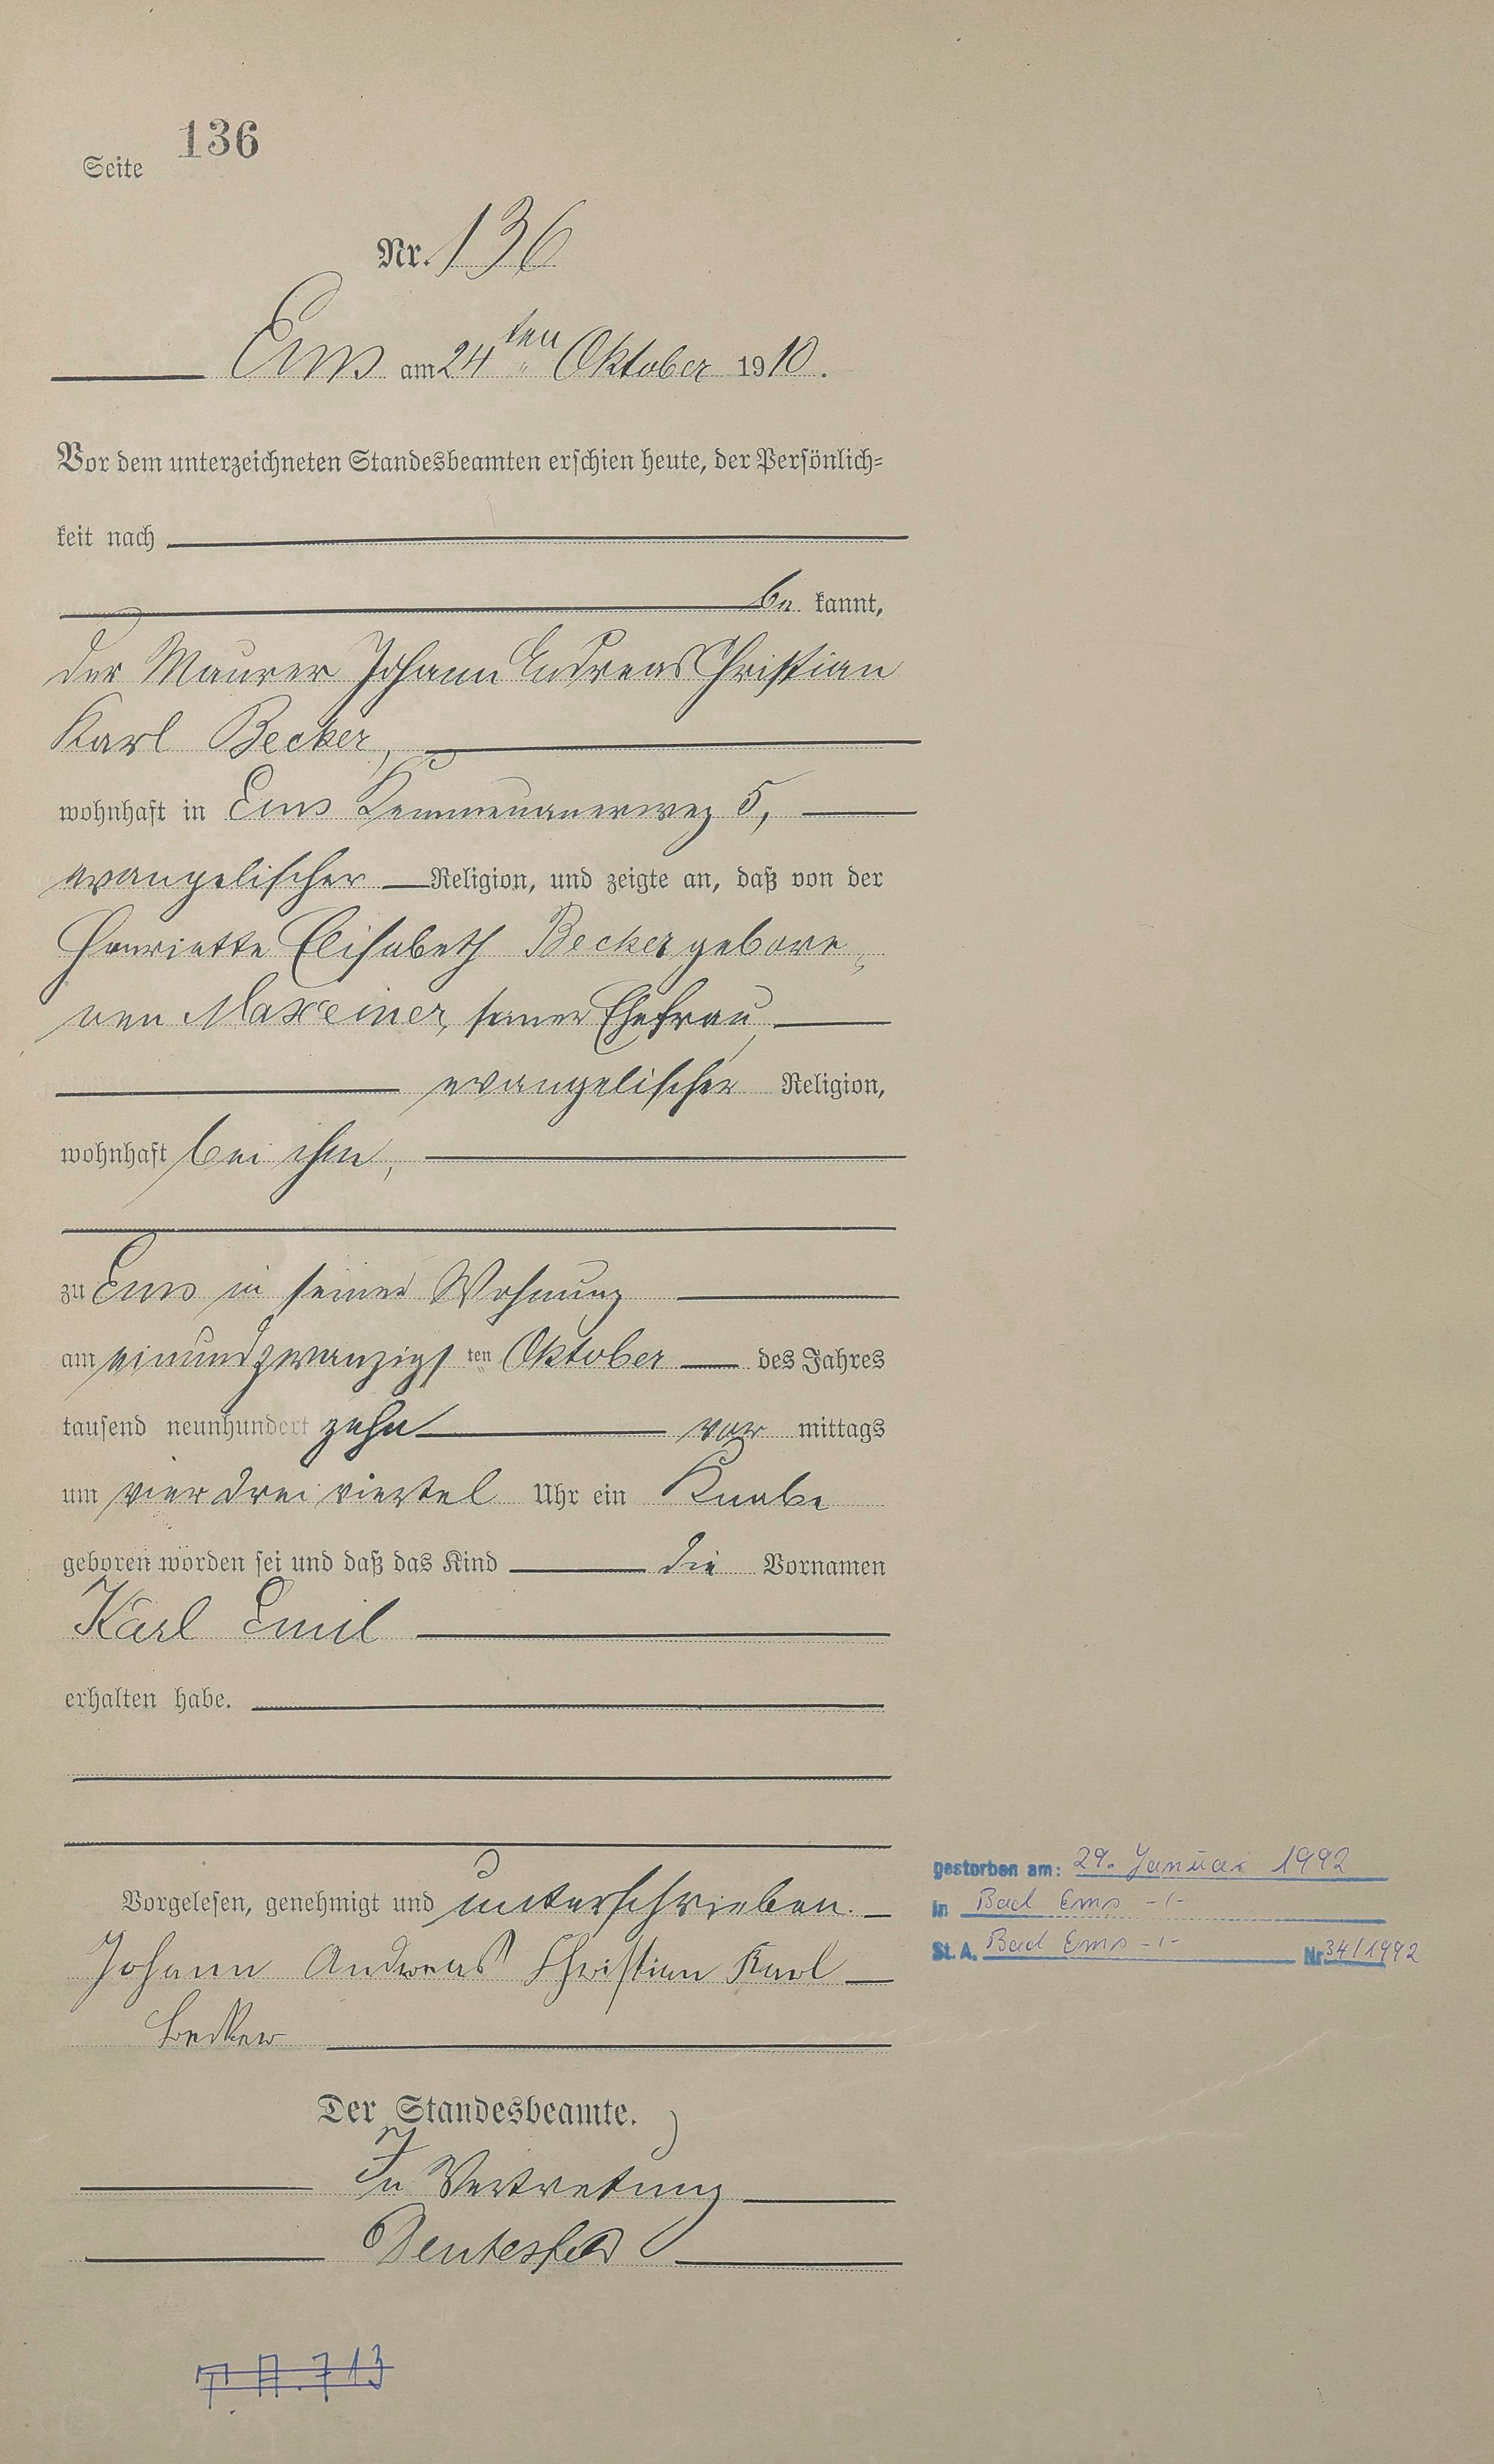 Seite 136
Nr. 136
Ems am 24ten Oktober 1910.
Vor dem unterzeichneten Standesbeamten erschien heute, der Persönlich-
keit nach
be kannt,
der Maurer Johann Andreas Christian
Karl Becker,
wohnhaft in Ems Kemmenauerweg 5,
evangelischer Religion, und zeigte an, daß von der
Henriette Elisabeth Becker gebore-
nen Maxeiner, seiner Ehefrau,
evangelischer Religion,
wohnhaft bei ihm,
zu Ems in seiner Wohnung
am einundzwanzigsten Oktober des Jahres
tausend neunhundert zehn vor mittags
um vier drei viertel Uhr ein Knabe
geboren worden sei und daß das Kind die Vornamen
Karl Emil
erhalten habe.
Vorgelesen, genehmigt und unterschrieben.
Johann Andreas Christian Karl
Becker
Der Standesbeamte.
In Vertretung
gestorben am: 29. Januar 1992
in Bad Ems -/-
St. A. Bad Ems -/- Nr 34/1992